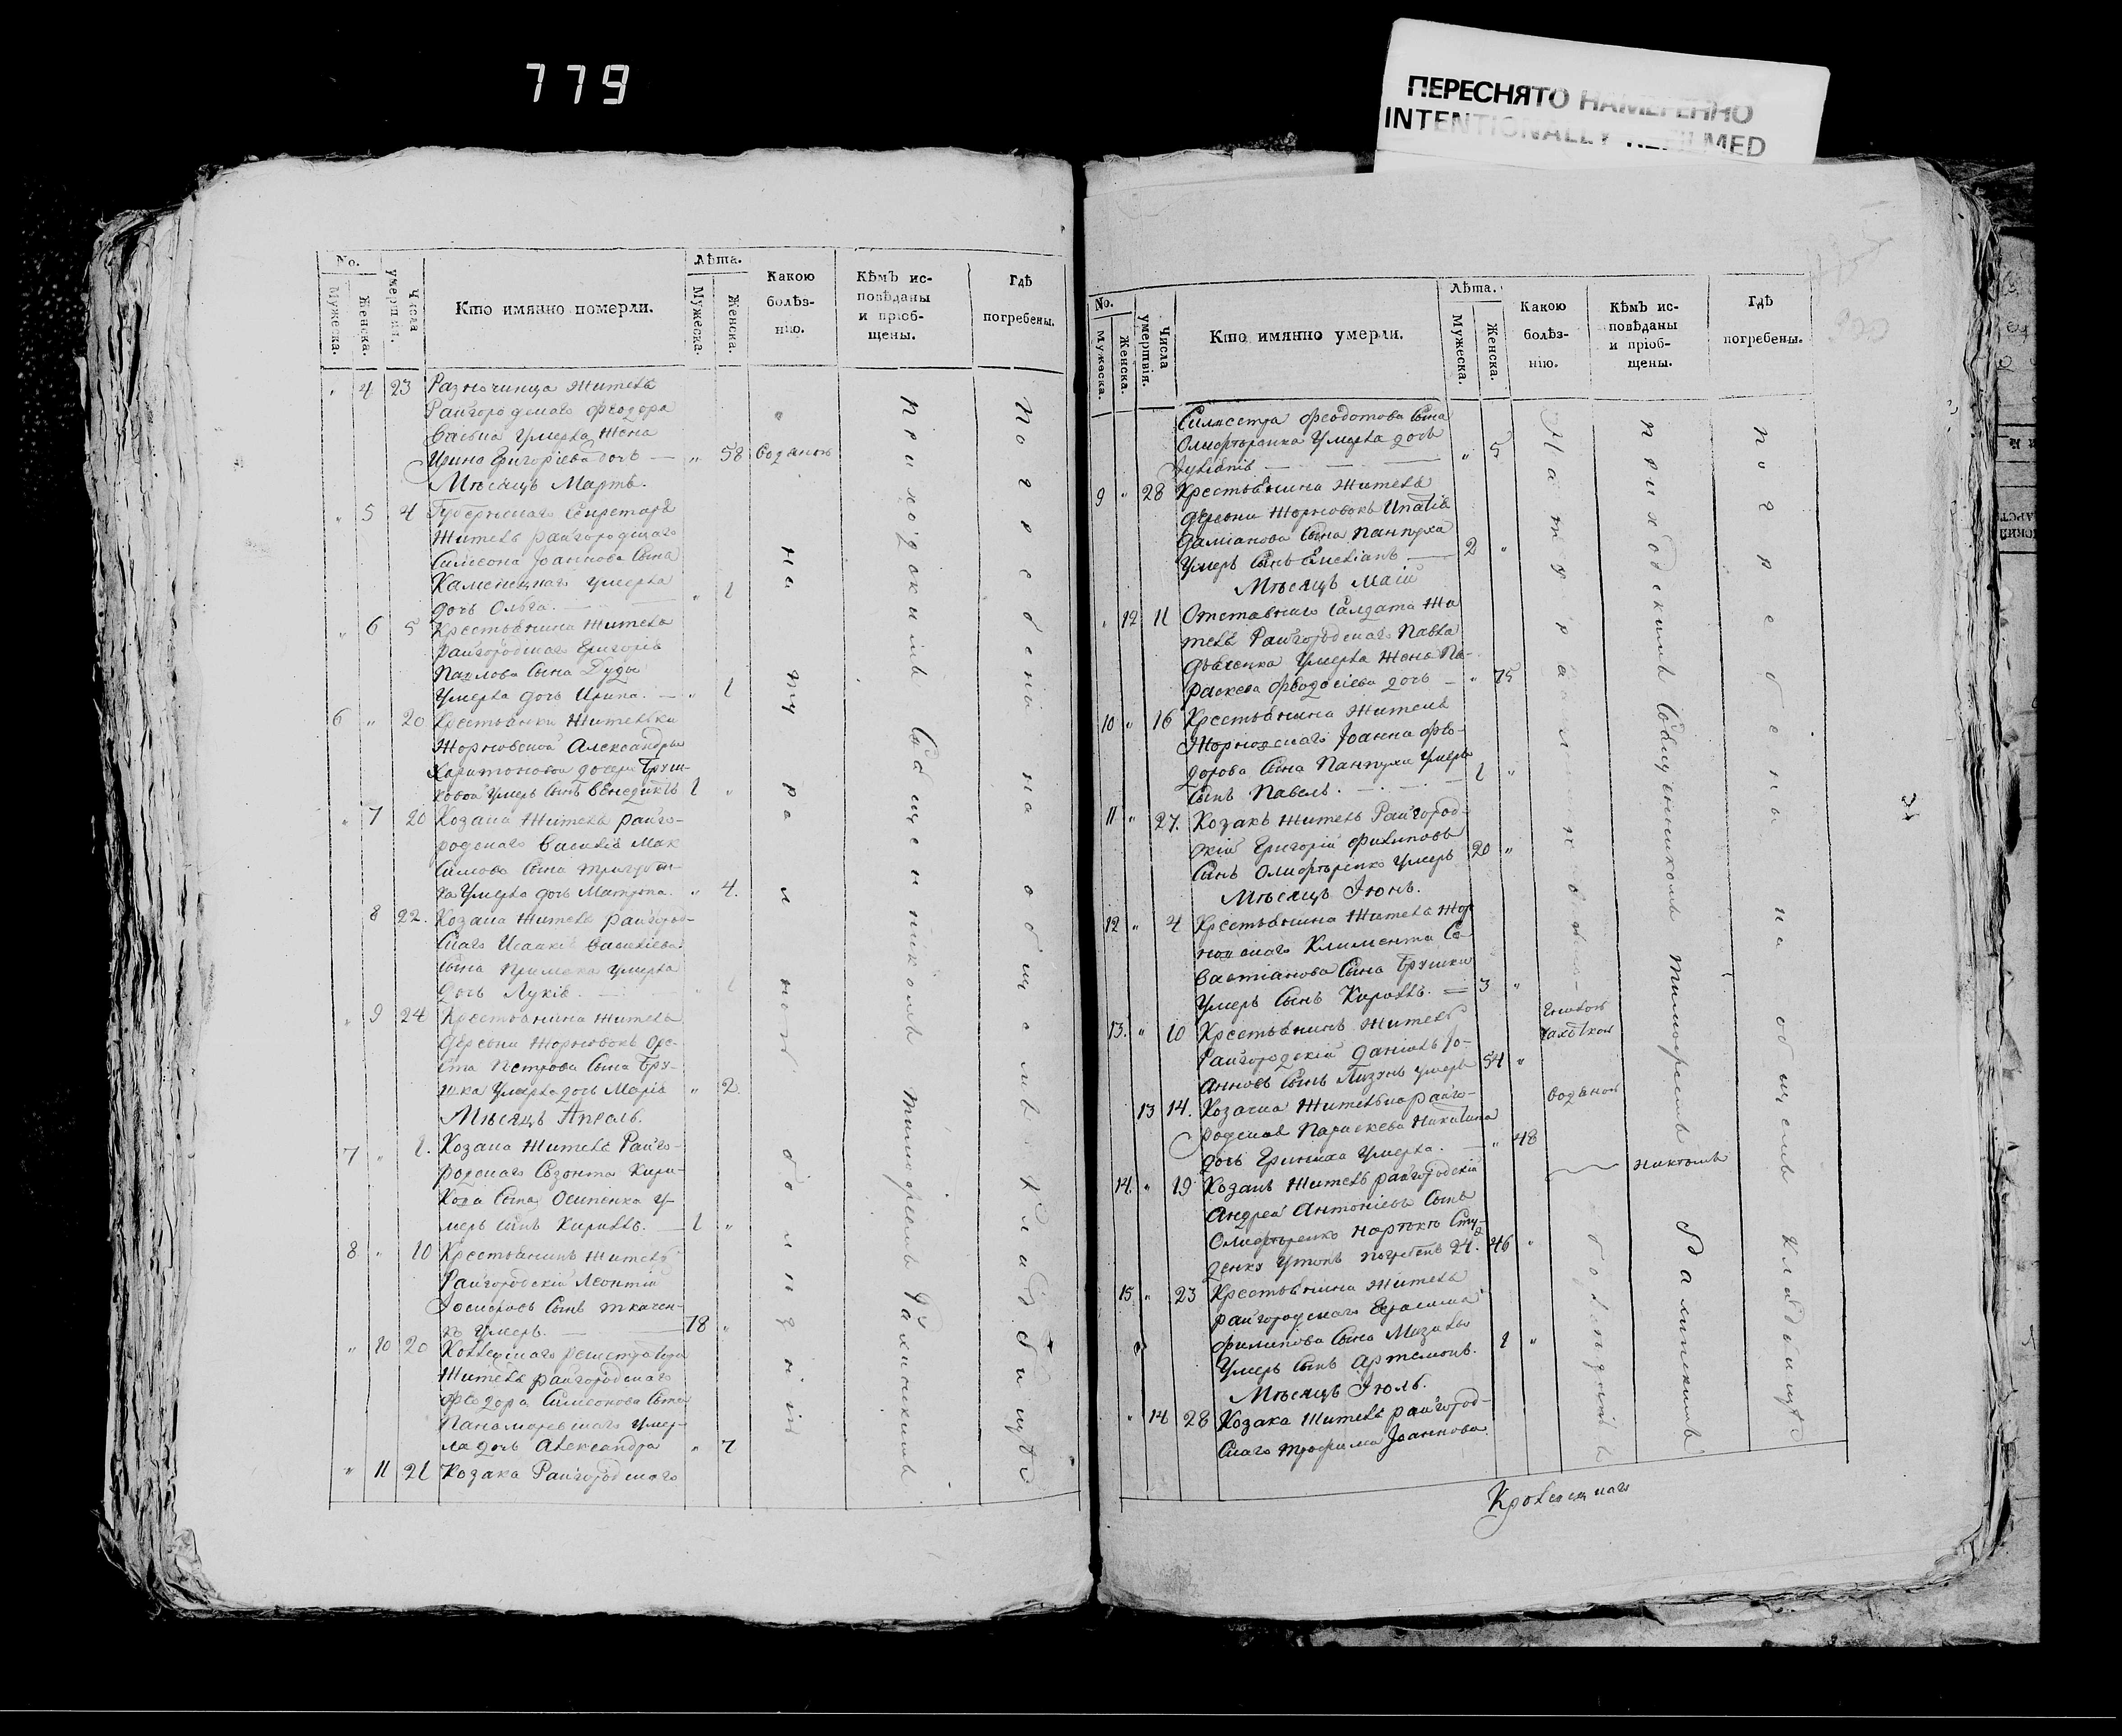 779
ПЕРЕСНЯТО НАМЕРЕННО
INTENTIONALLY REFILMED
No.
Мужеска.
Женска.
Числа умертвія.
Кто имянно померли.
Лѣта.
Мужеска.
Женска.
Какою болѣз-
нію.
Кѣмъ ис-
повѣданы
и пріоб-
щены.
Гдѣ
погребены.
4 23 Разночинца жителя
Райгородскаго Феодора
умерла жена
Ирина Григоріева дочь — „ 58 водяною
Мѣсяцъ Мартъ.
„ 5 4 Губернскаго Секретаря
Жителя райгородскаго
Симеона Іоаннова Сына
Каменецкаго умерла
дочь Ольга. — „ 1
„ 6 5 Крестьянина жителя
райгородскаго Григорія
Павлова Сына Дуды
Умерла дочь Ирина. — „ 1
6 „ 20 Крестьянки жительки
Жорновской Александры
Харитоновой дочери Бруш-
ковой умеръ сынъ Венедиктъ 1 „
„ 7 20 Козака жителя райго-
родскаго Василія Мак
симова Сына
ка умерла дочь Матрона. „ 4.
8 22. Козака жителя райгород-
скаго Исаакія Васильева
Сына Примака умерла
дочь Лукія. — „ 1
„ 9 24 Крестьянина жителя
деревни Жорновокъ Оре-
ста Петрова Сына Бру-
шка умерла дочь Марія „ 2.
Мѣсяцъ Апрель.
7 „ 1. Козака жителя Райго-
родскаго Созонта Кири-
Сына Осипенка у-
меръ сынъ Кириллъ. — 1 „
8 „ 10 Крестьянинъ житель
Райгородскій Леонтій
Сынъ Ткачен-
ко умеръ. — 78 „
„ 10 20 Коллежскаго регистратора
Жителя райгородскаго
Феодора Симеонова Сына
Панаморевскаго умер-
ла дочь Александра „ 7
„ 11 21 Козака Райгородскаго
натуральною болѣзнію
приходскимъ Священникомъ Тимофеемъ
погребены на общемъ кладбищѣ
No.
Мужеска.
Женска.
Числа умертвія.
Кто имянно умерли.
Лѣта.
Мужеска.
Женска.
Какою
болѣз-
нію.
Кѣмъ ис-
повѣданы
и пріоб-
щены.
Гдѣ
погребены.
Силвестра Феодотова Сына
умерла дочь
Іуліанія — „ 5
9 „ 28 Крестьянина жителя
деревни Жорновокъ Ипатія
Даміанова Сына Панпуха
Умеръ Сынъ Емеліанъ — 2 „
Мѣсяцъ Маій
„ 12 11 Отставнаго Салдата жи
теля Райгородскаго Павла
умерла жена Па-
раскева Феодосіева дочь — „ 75
10 „ 16 Крестьянина жителя
Жорновскаго Іоанна Фео-
дорова Сына Панпухи умеръ
Сынъ Павелъ. — 1 „
11 „ 27. Козакъ житель Райгород-
скій Григорій Филиповъ
Сынъ умеръ 20 „
Мѣсяцъ Іюнь.
12 „ 4 Крестьянина жителя Жор
новскаго Климента Се
вастіанова Сына Брушки
Умеръ Сынъ Кириллъ. = 3 „
13. „ 10 Крестьянинъ житель
Райгородскій Даніилъ Іо-
анновъ Сынъ Лизунъ умеръ 54 „
чахоткою
13 14. Козачка жителька райго-
родская Параскева Никитина
дочь умерла. — „ 48
водяною
14. „ 19 Козакъ житель райгородскій
Андрей Антоніевъ Сынъ
Сту-
денко утонъ погребенъ 24. 46 „
никтомъ
15 „ 23 Крестьянина жителя
райгородскаго Герасима
Филипова Сына
Умеръ Сынъ Артемонъ. 1 „
Мѣсяцъ Іюль.
„ 14 28 Козака жителя райгород-
скаго Трофима Іоаннова
натуральною
болѣзнію
приходскимъ Священникомъ Тимофеемъ
погребены на общемъ кладбищѣ